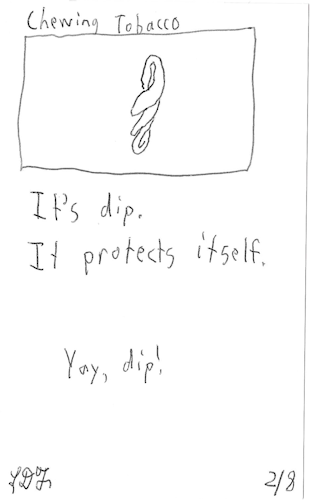 Chewing Tobacco
It's dip.
It protects itself.
Yay, dip!
2/8